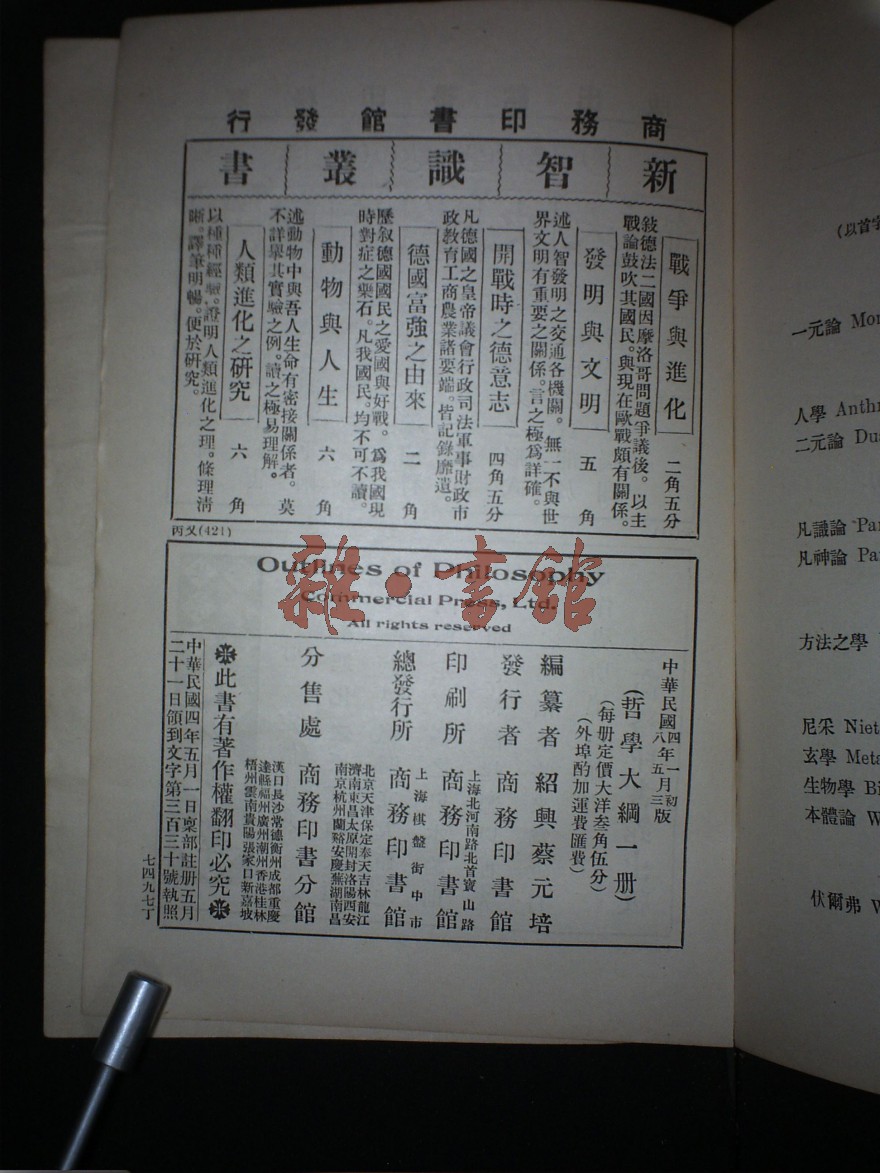 商務印書館發行
新智識叢書
戰爭與進化 二角五分
敍德法二國因摩洛哥問題爭議後。以主
戰論鼓吹其國民。與現在歐戰頗有關係。
發明與文明 五角
述人智發明之交通各機關。無一不與世
界文明有重要之關係。言之極爲詳確。
開戰時之德意志 四角五分
凡德國之皇帝議會行政司法軍事財政市
政教育工商農業諸要端。皆記錄靡遺。
德國富強之由來 二角
歷敘德國國民之愛國與好戰。爲我國現
時對症之藥石。凡我國民。均不可不讀。
動物與人生 六角
述動物中與吾人生命有密接關係者。莫
不詳舉其實驗之例。讀之極易理解。
人類進化之研究 六角
以種種經驗。證明人類進化之理。條理清
晰。譯筆明暢。便於研究。
丙(421)
Outlines of Philosophy
Commercial Press, Ltd.
All rights reserved
中華民國四年一月初版
八年五月三版
(哲學大綱一册)
(每册定價大洋叁角伍分)
(外埠酌加運費匯費)
編纂者 紹興蔡元培
發行者 商務印書館
上海北河南路北首寶山路
印刷所 商務印書館
上海棋盤街中市
總發行所 商務印書館
北京天津保定奉天吉林龍江
濟南東昌太原開封洛陽西安
南京杭州蘭谿安慶蕪湖南昌
分售處 商務印書分館
漢口長沙常德衡州成都重慶
達縣福州廣州潮州香港桂林
梧州雲南貴陽張家口新嘉坡
此書有著作權翻印必究
中華民國四年五月一日稟部註册五月
二十一日領到文字第三百三十號執照
七四九七丁
雜·書館
(以首字
一元論 Mon
人學 Anthr
二元論 Dua
凡識論 Pan
凡神論 Pa
方法之學
尼采 Niet
玄學 Meta
生物學 Bi
本體論 W
伏爾弗 W